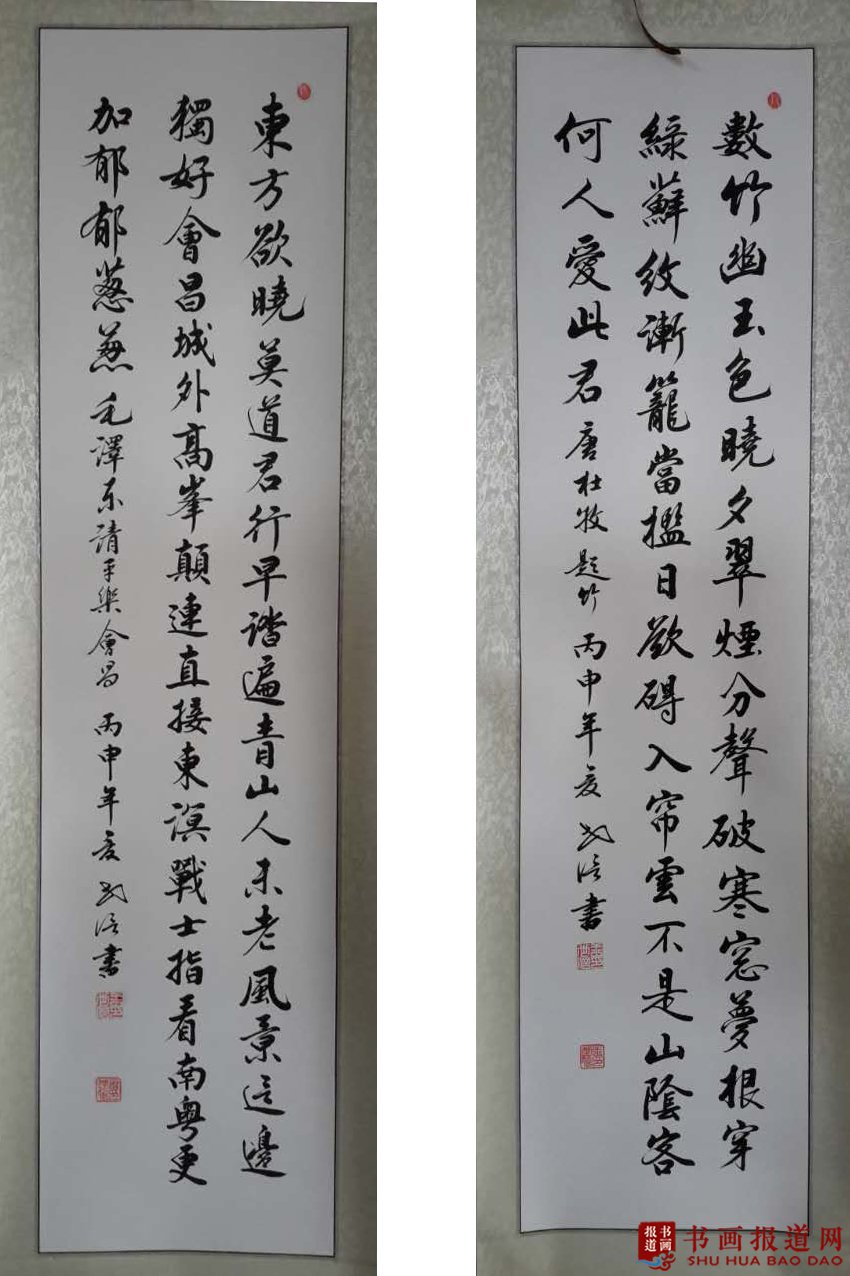 東方欲曉莫道君行早踏遍青山人未老風景這邊
獨好會昌城外高峯顛連直接東溟戰士指看南粤更
加郁郁葱葱 毛澤东清平樂會昌 丙申年夏 書
數竹幽玉色曉夕翠煙分聲破寒窓夢根穿
綠蘚紋漸籠當檻日欲礙入帘雲不是山陰客
何人愛此君 唐杜牧題竹 丙申年夏 書
书画报道
书画报道网
SHU HUA BAO DAO